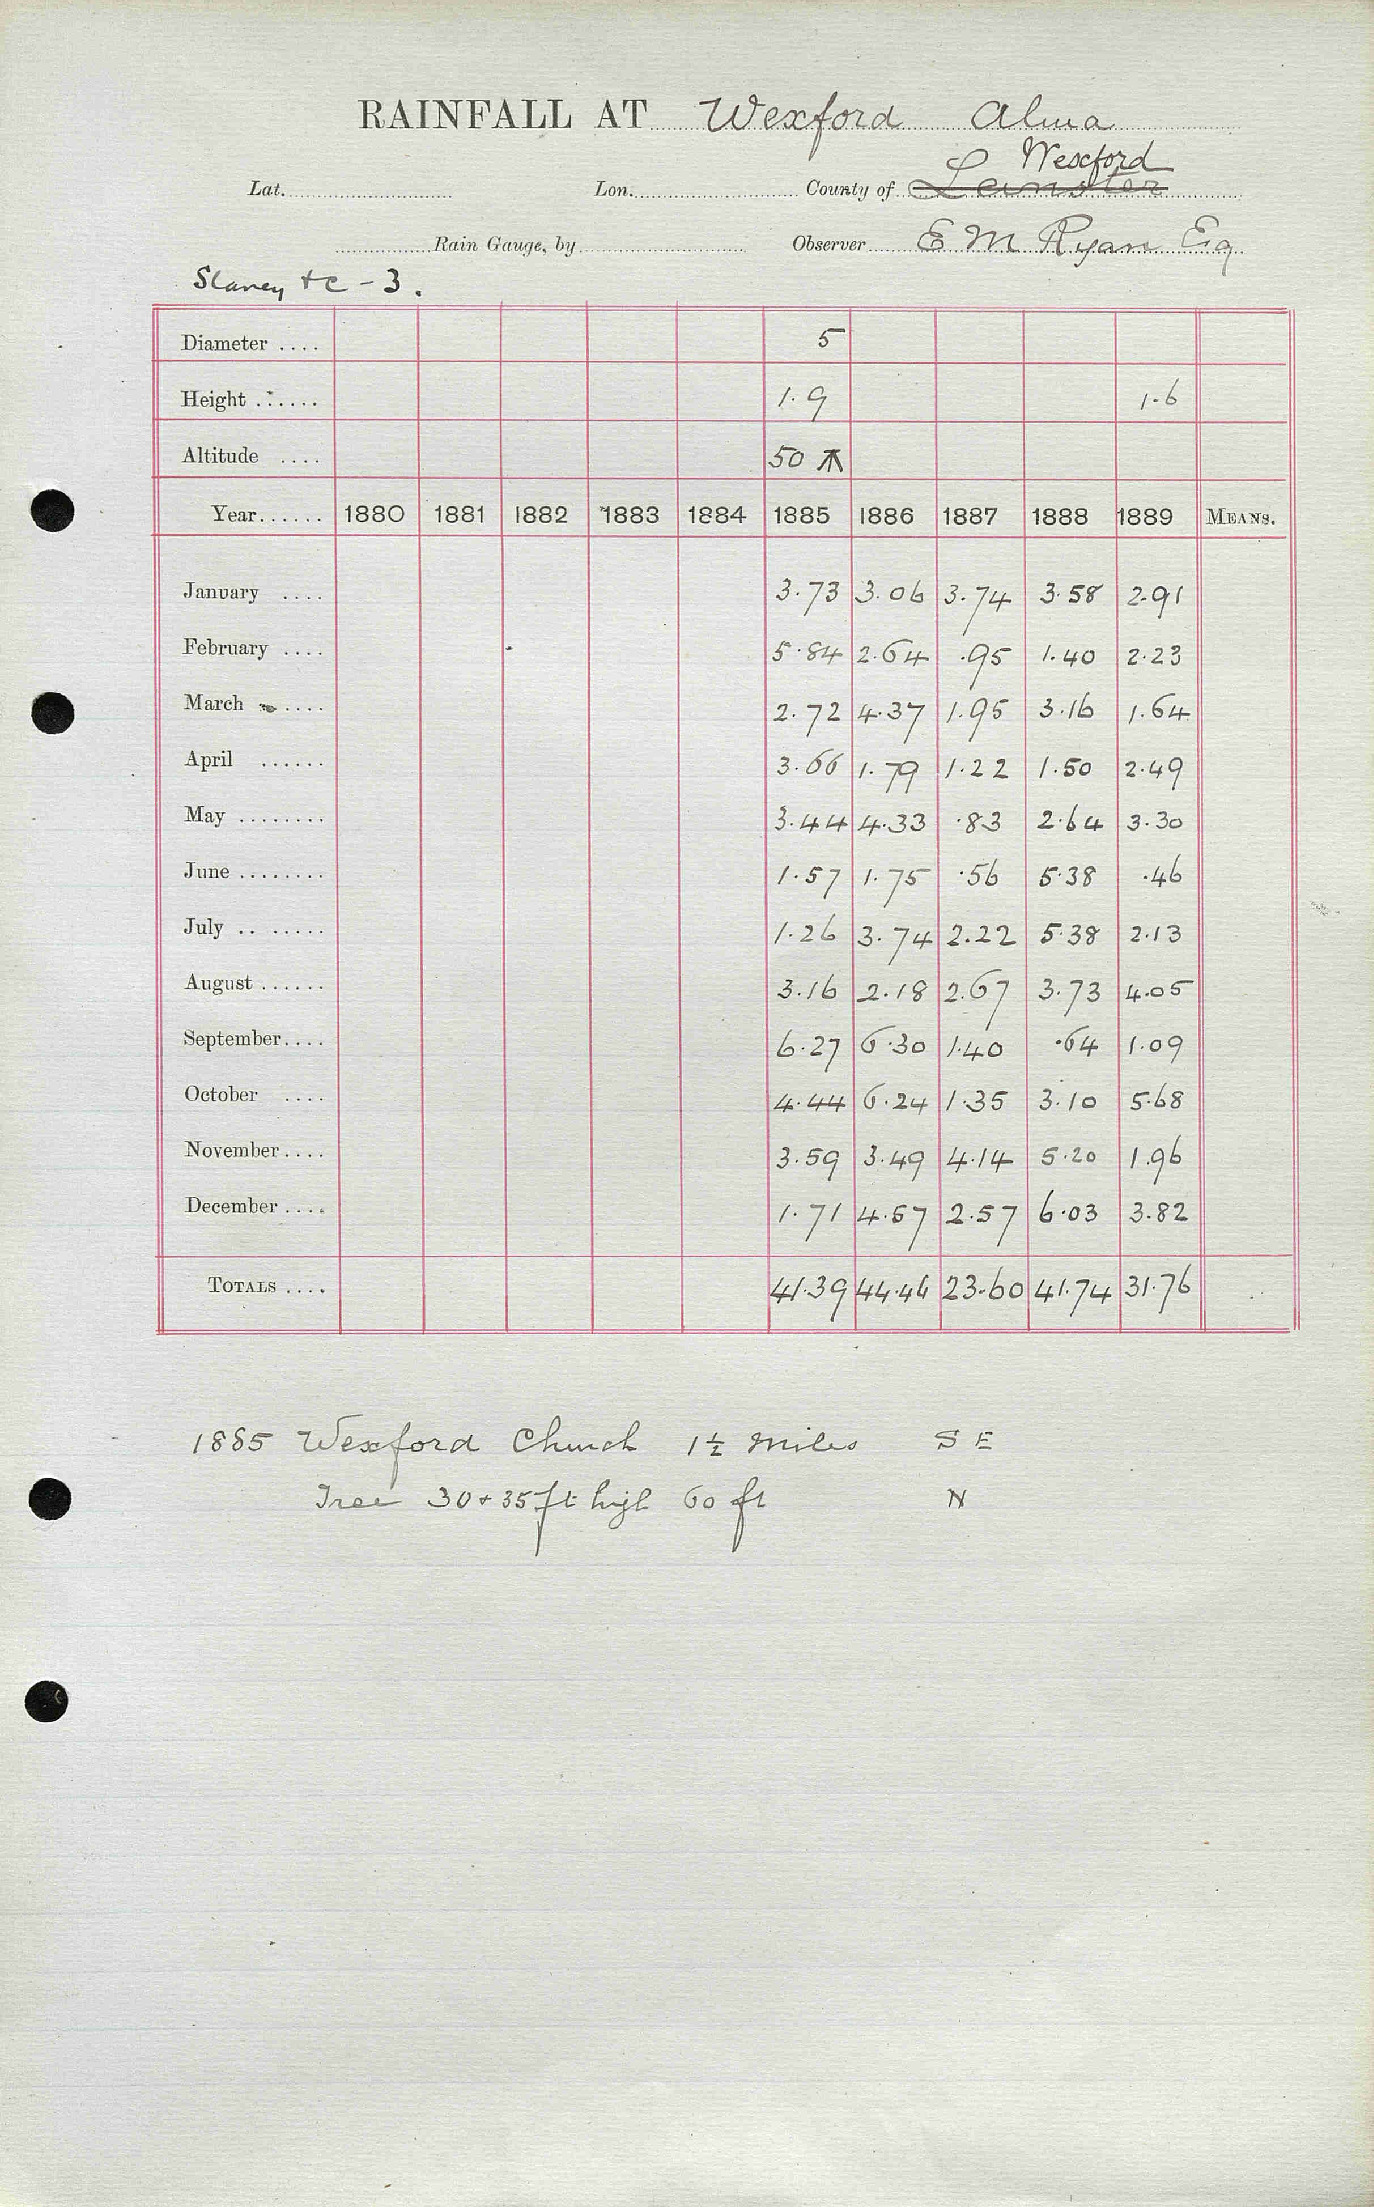 RAINFALL AT Wexford Alma
Wexford
Lat. Lon. County of Leinster
Rain Gauge, by Observer E M Ryan Esq
Slaney &c - 3.
Diameter .... 5
Height ...... 1.9 1.6
Altitude .... 50
Year...... 1880 1881 1882 1883 1884 1885 1886 1887 1888 1889 MEANS.
January .... 3.73 3.06 3.74 3.58 2.91
February .... 5.84 2.64 .95 1.40 2.23
March .... 2.72 4.37 1.95 3.16 1.64
April ...... 3.66 1.79 1.22 1.50 2.49
May ........ 3.44 4.33 .83 2.64 3.30
June ........ 1.57 1.75 .56 5.38 .46
July .. ..... 1.26 3.74 2.22 5.38 2.13
August ...... 3.16 2.18 2.67 3.73 4.05
September.... 6.27 6.30 1.40 .64 1.09
October .... 4.44 6.24 1.35 3.10 5.68
November.... 3.59 3.49 4.14 5.20 1.96
December .... 1.71 4.57 2.57 6.03 3.82
TOTALS .... 41.39 44.46 23.60 41.74 31.76
1885 Wexford Church 1½ miles S E
Tree 30 + 35 ft high 60 ft N